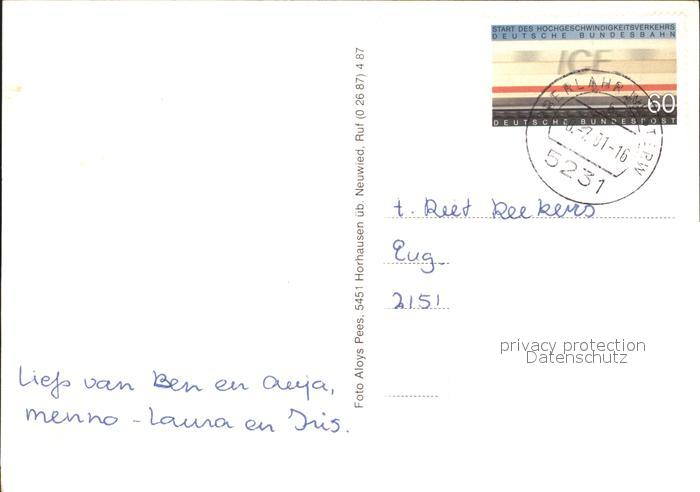 START DES HOCHGESCHWINDIGKEITSVERKEHRS
DEUTSCHE BUNDESBAHN
ICE
60
DEUTSCHE BUNDESPOST
5231
Foto Aloys Pees, 5451 Horhausen üb. Neuwied, Ruf (0 26 87) 4 87
t. Riet Reekers
Eug.
2151
privacy protection
Datenschutz
Liefs van Ben en Anja,
menno - Laura en Iris.